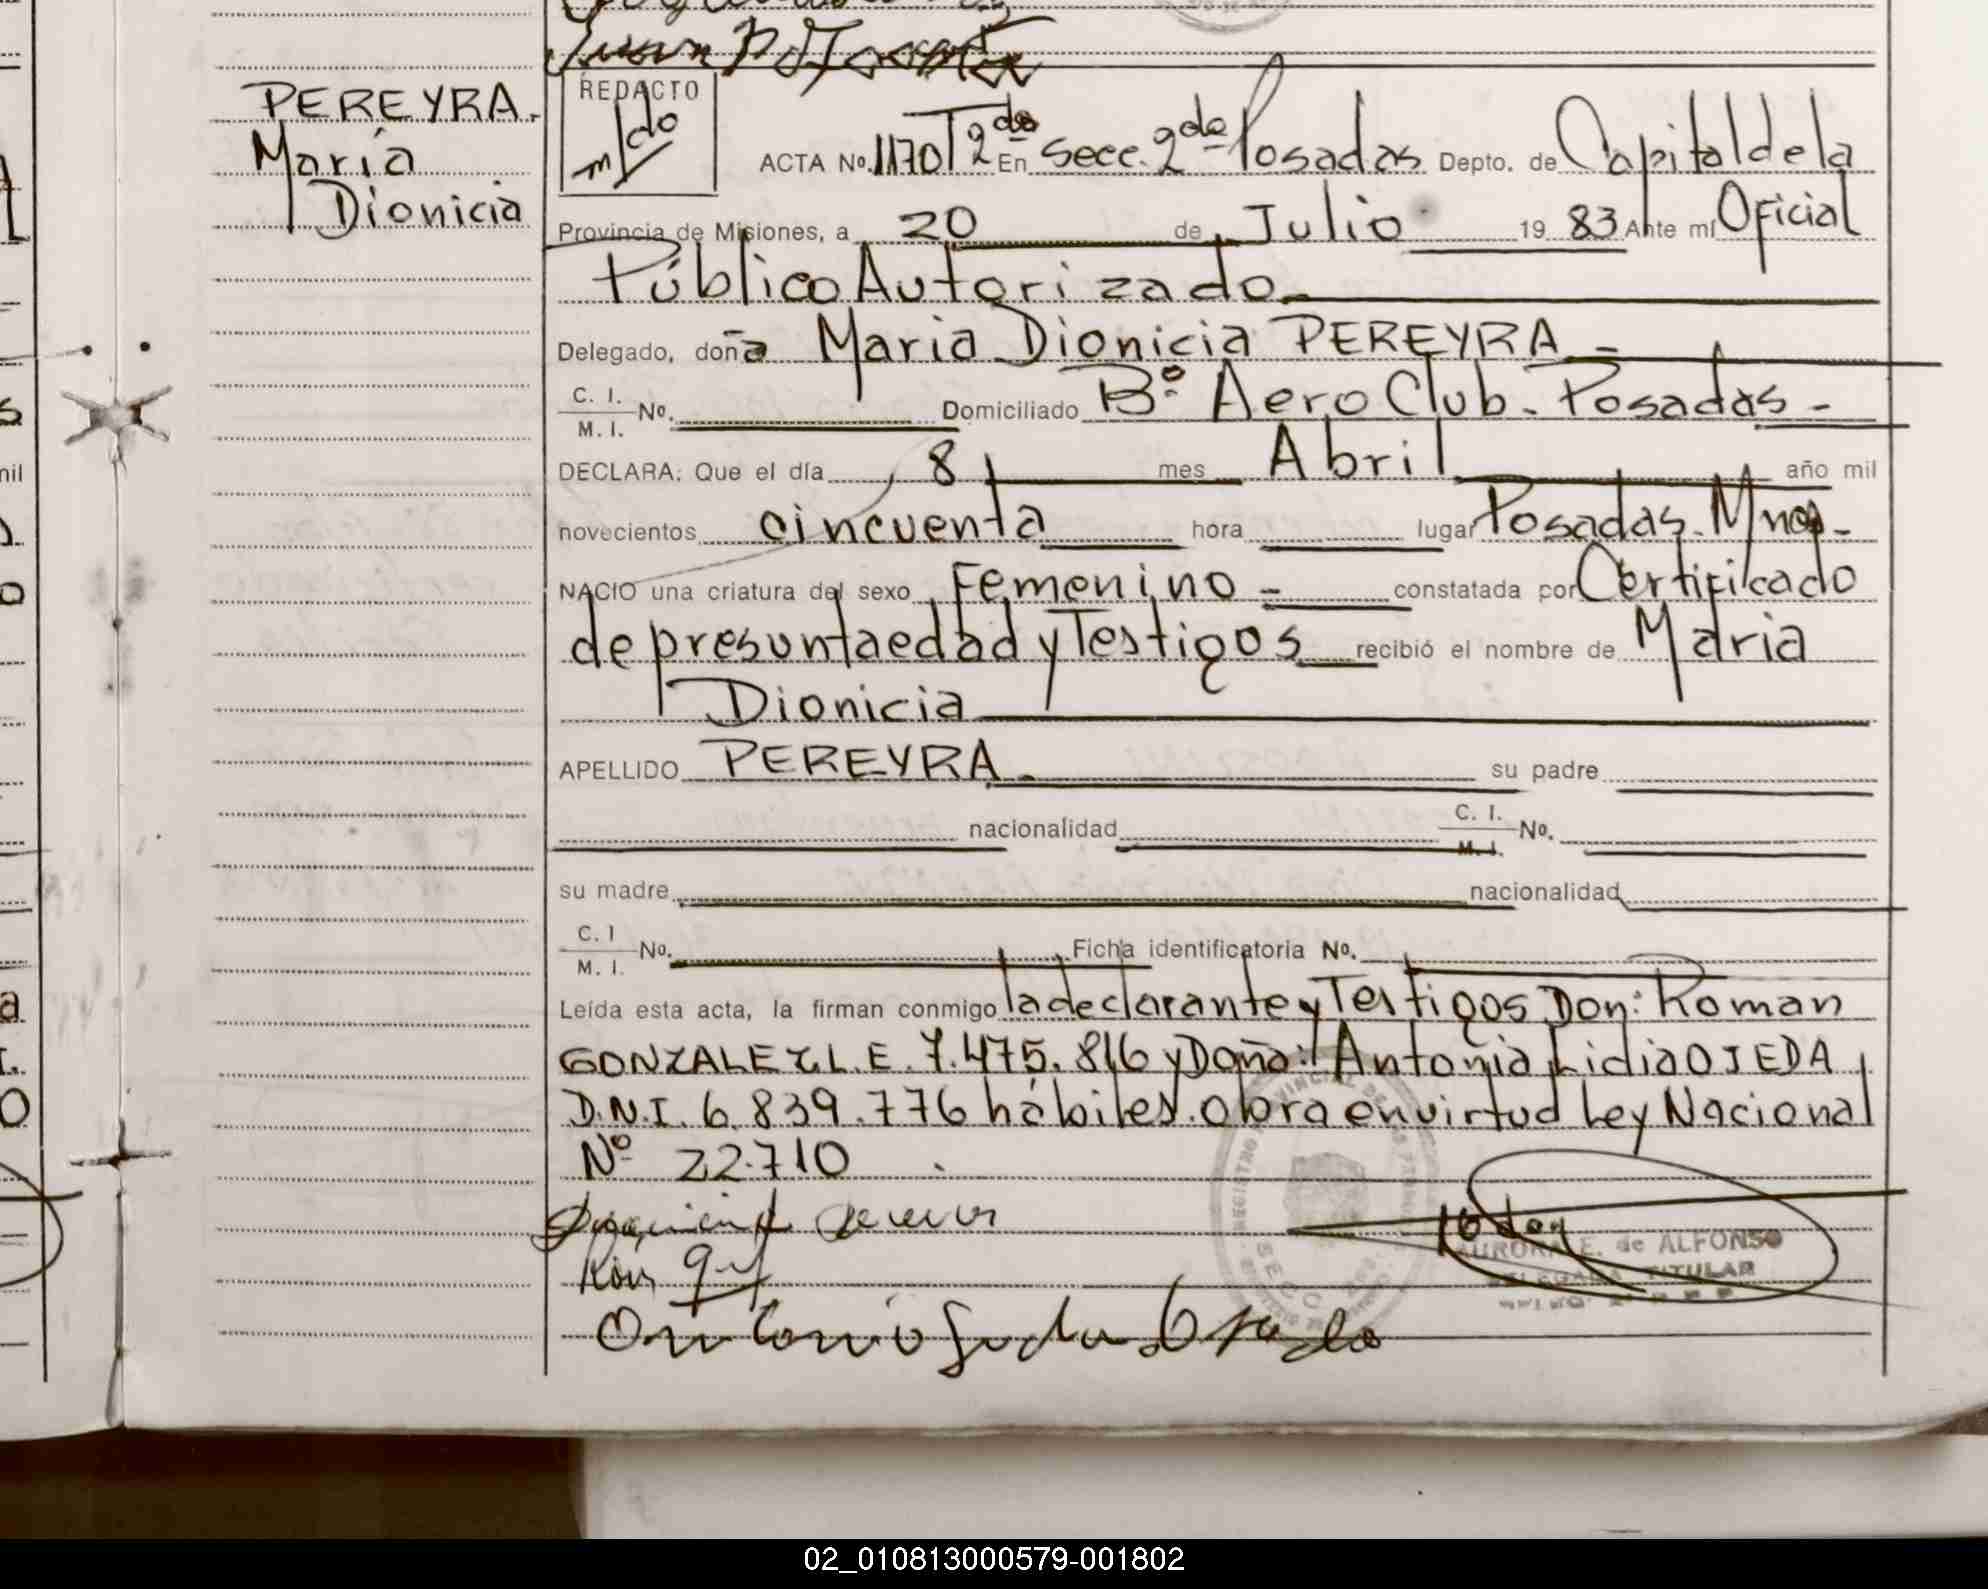 PEREYRA.
María
Dionicia
REDACTO
ACTA No. 1170 T 2do En Secc. 2da Posadas Depto. de Capital de la
Provincia de Misiones, a 20 de Julio 19 83 Ante mí Oficial
Público Autorizado
Delegado, doña Maria Dionicia PEREYRA
C. I. M. I. No. Domiciliado Bº Aero Club. Posadas -
DECLARA: Que el día 8 mes Abril año mil
novecientos cincuenta hora lugar Posadas. Mnes-
NACIO una criatura del sexo Femenino - constatada por Certificado
de presunta edad y Testigos recibió el nombre de Maria
Dionicia
APELLIDO PEREYRA. su padre
nacionalidad C. I. M. I. No.
su madre nacionalidad
C. I M. I. No. Ficha identificatoria No.
Leída esta acta, la firman conmigo la declarante y Testigos Don: Roman
GONZALEZ L.E. 7.475.816 y Doña: Antonia Lidia OJEDA
D.N.I. 6.839.776 hábiles. obra en virtud Ley Nacional
Nº 22.710
AURORA E. de ALFONSO
DELEGADA TITULAR
02_010813000579-001802